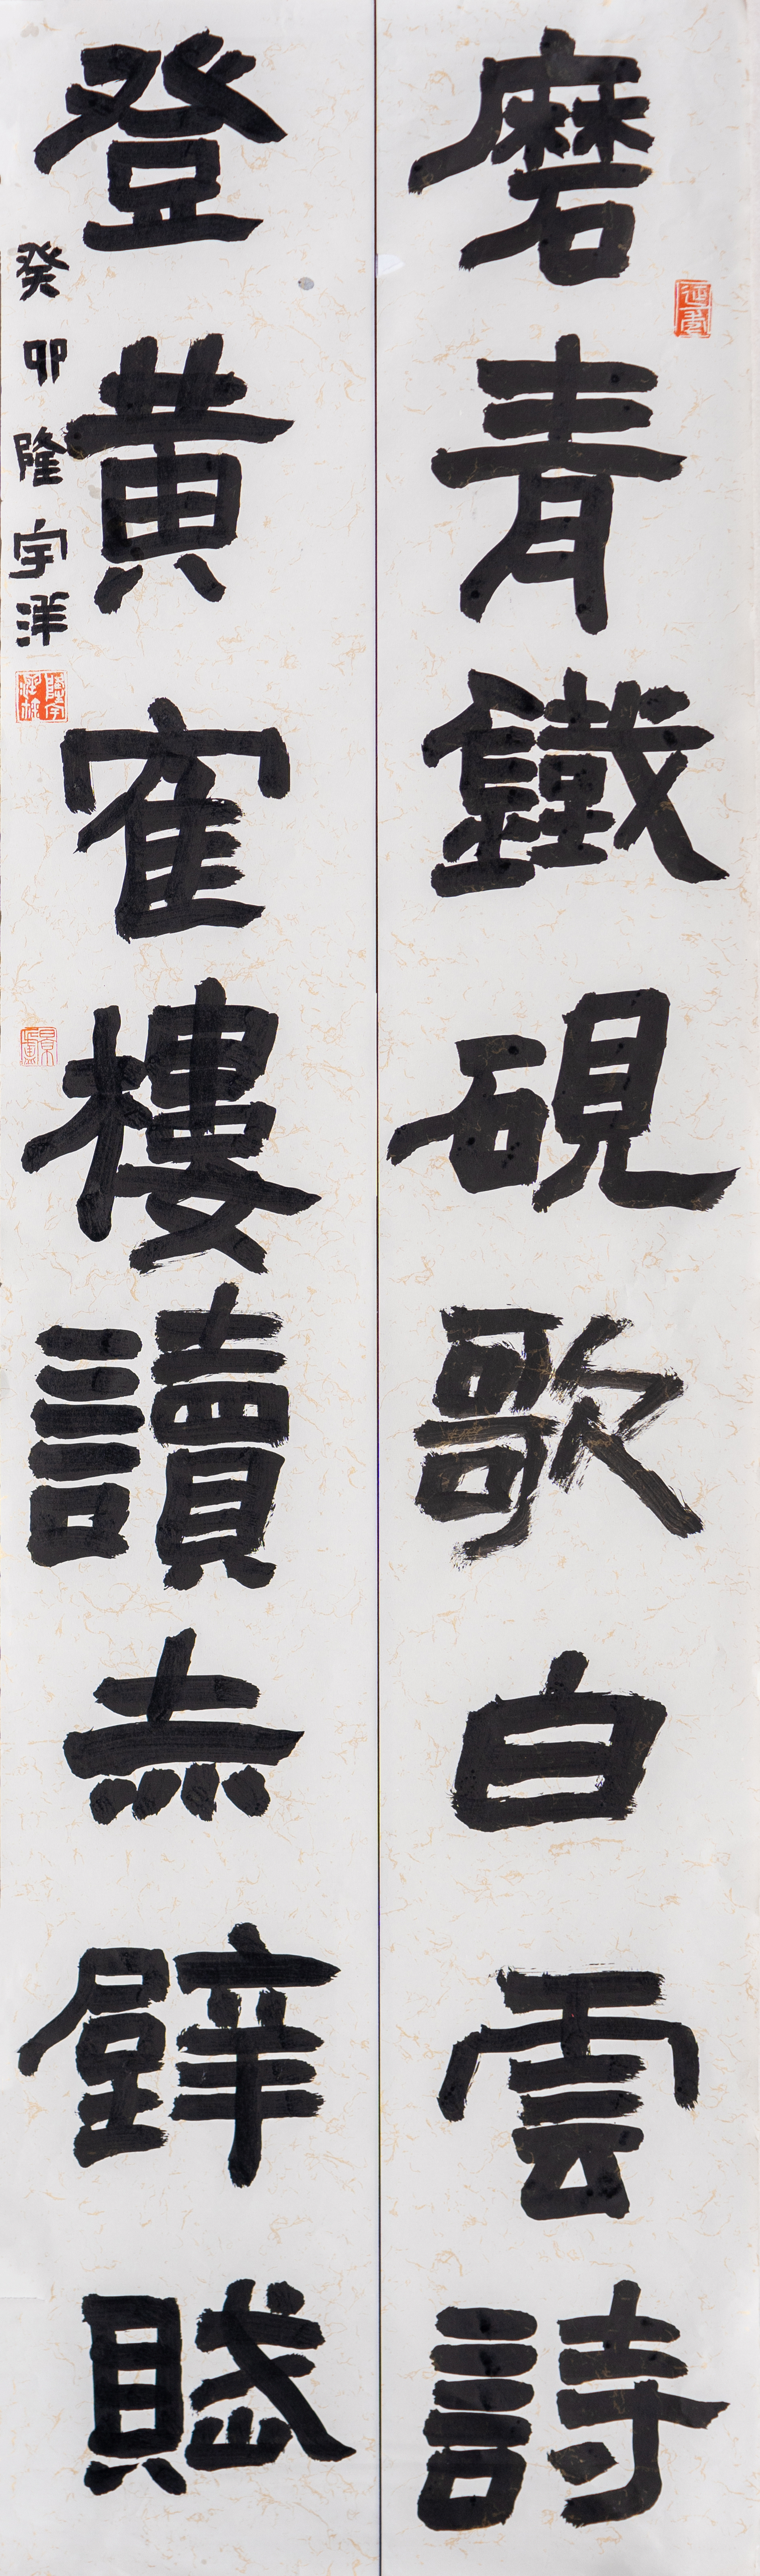 磨青鐵硯歌白雲詩
登黃寉樓讀赤壁賦
癸卯隆宇洋